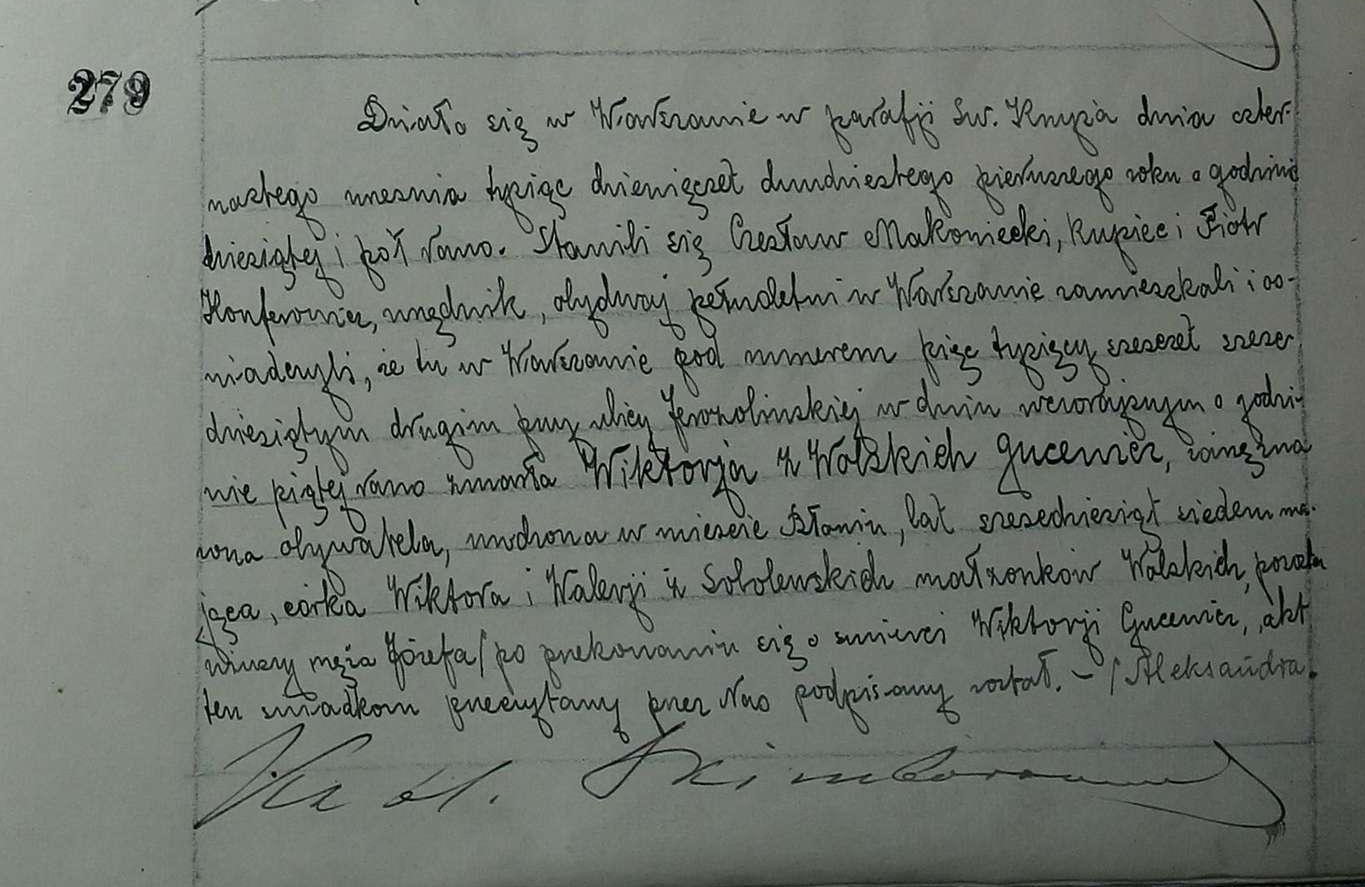 279
Działo się w Warszawie w parafji Św. Krzyża dnia czter-
nastego września tysiąc dziewięćset dwudziestego pierwszego roku o godzinie
dziesiątej i pół rano. Stawili się Czesław Makowiecki, kupiec i Piotr
urzędnik, obydwaj pełnoletni w Warszawie zamieszkali i oś-
wiadczyli, że tu w Warszawie pod numerem pięć tysięcy szesset sześć-
dziesiątym drugim przy ulicy Jerozolimskiej w dniu wczorajszym o godzi-
nie piątej rano zmarła Wiktorja z Wolskich Gucewicz, zamężna
żona obywatela, urodzona w mieście Błoniu, lat sześćdziesiąt siedem ma-
jąca, córka Wiktora i Walerji z Sobolewskich małżonków Wolskich, pozosta
wiwszy męża Józefa/po przekonaniu się o śmierci Wiktorji Gucewicz, akt
ten świadkom przeczytany przez Nas podpisany został. – /Aleksandra.